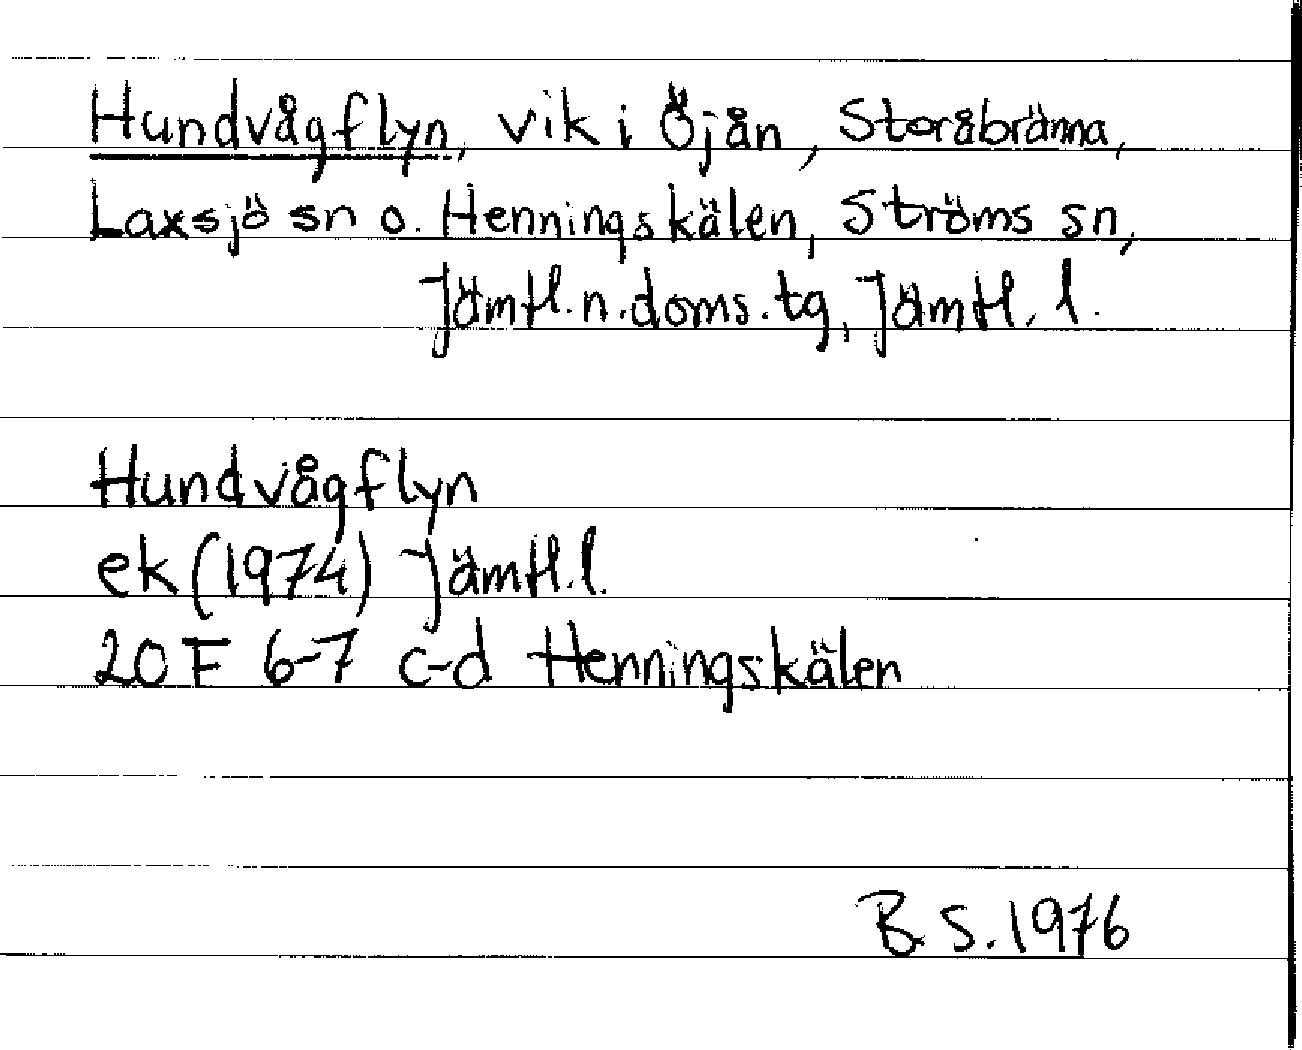 Hundvågflyn, vik i Öjån, Storåbränna,
Laxsjö sn o. Henningskälen, Ströms sn,
Jämtl.n.doms.tg, Jämtl. l.
Hundvågflyn
ek (1974) Jämtl.l.
20 F 6-7 c-d Henningskälen
B.S. 1976